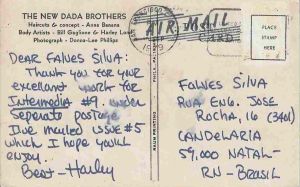 THE NEW DADA BROTHERS
Haircuts & concept - Anna Banana
Body Artists - Bill Gaglione & Harley Lond
Photograph - Donna-Lee Phillips
AIR MAIL
1979
Dear Falves Silva:
Thank you for your
excellant work for
Intermedia #9. Under
seperate postage
I've mailed issue #5
which I hope you'll
enjoy.
Best - Harley
Falves Silva
Rua Eng. Jose
Rocha, 16 (3401)
Candelaria
59,000 Natal-
RN-Brasil